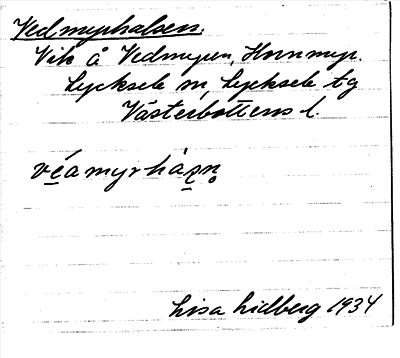 Vedmyrhalsen.
Vik å Vedmyren, Hornmyr.
Lycksele sn, Lycksele tg
Västerbottens l.
Lisa Lidberg 1934